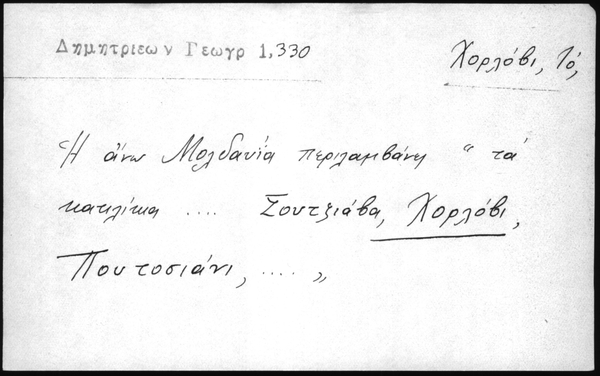 Δημητριεων Γεωγρ 1,330
Χορλόβι, Τό,
Ἡ ἄνω Μολδαυΐα περιλαμβάνει " τά
κατιλίκια .... Σουτζιάβα, Χορλόβι,
Πουτοσιάνι, .... "